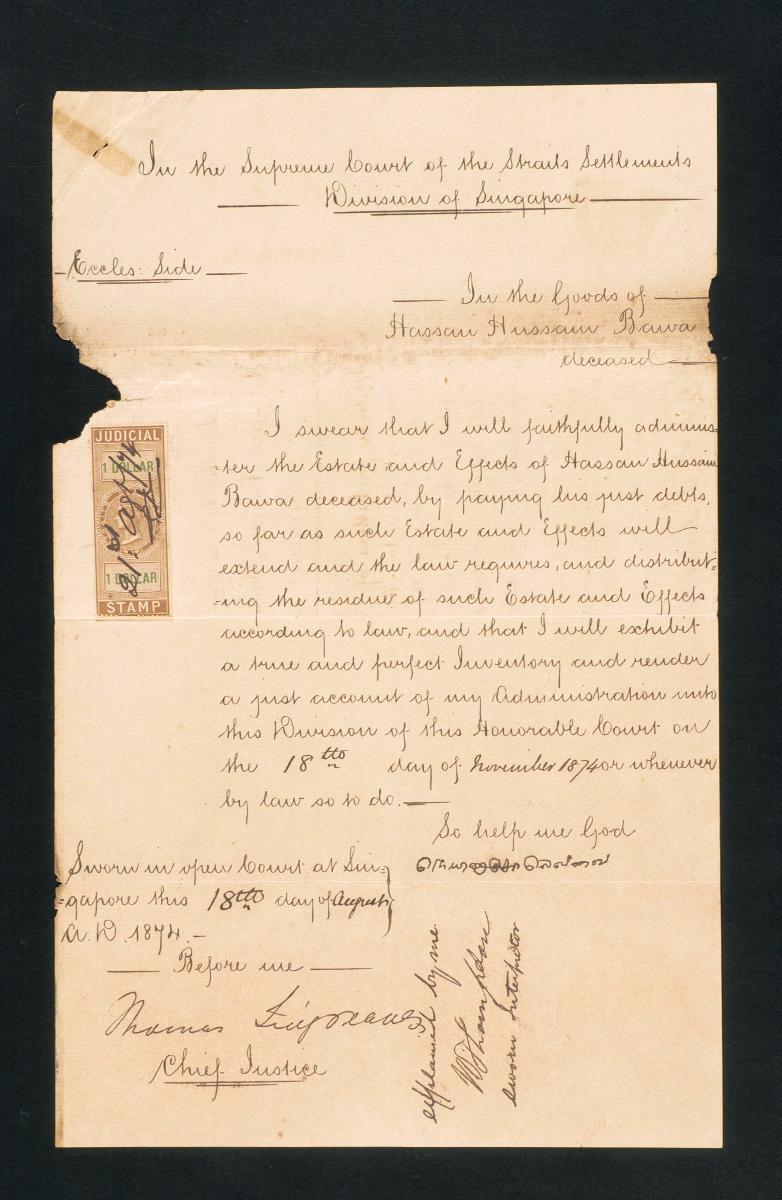 In the Supreme Court of the Straits Settlements
Division of Singapore
Eccles: Side
In the Goods of
Hassan Hussain Bawa
deceased
JUDICIAL
1 DOLLAR
1 DOLLAR
STAMP
I swear that I will faithfully adminis-
-ter the Estate and Effects of Hassan Hussain
Bawa deceased, by paying his just debts,
so far as such Estate and Effects will
extend and the law requires, and distribut-
-ing the residue of such Estate and Effects
according to law, and that I will exhibit
a true and perfect Inventory and render
a just account of my Administration unto
this Division of this Honorable Court on
the 18th day of November 1874 or whenever
by law so to do.
So help me God
Sworn in open Court at Sin-
-gapore this 18th day of August
A.D. 1874.
Before me
Thomas Sidgreaves
Chief Justice
explained by me
sworn Interpretor